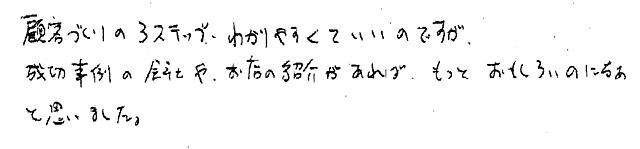 顧客づくりの3ステップ、わかりやすくていいのですが、
成功事例の会社や、お店の紹介があれば、もっとおもしろいのになあ
と思いました。